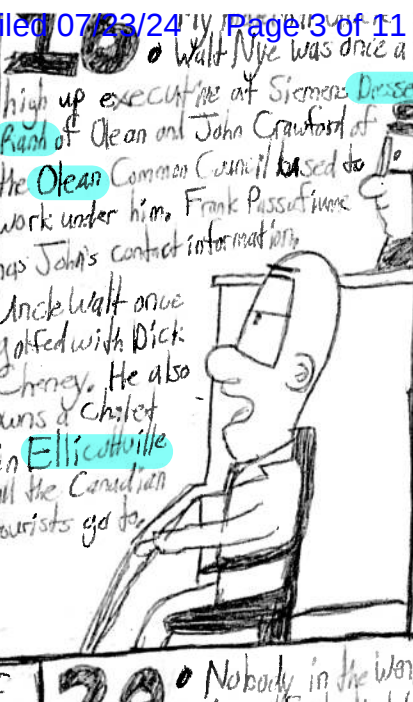 iled 07/23/24 Page 3 of 11
18
• Walt Nye was once a
high up executive at Siemens Dresse
Rand of Olean and John Crawford of
the Olean Common Council used to
work under him. Frank
has John's contact information.
Uncle Walt once
golfed with Dick
Cheney. He also
owns a Chilet
in Ellicottville
all the Canadian
tourists go to.
• Nobody in the Wor